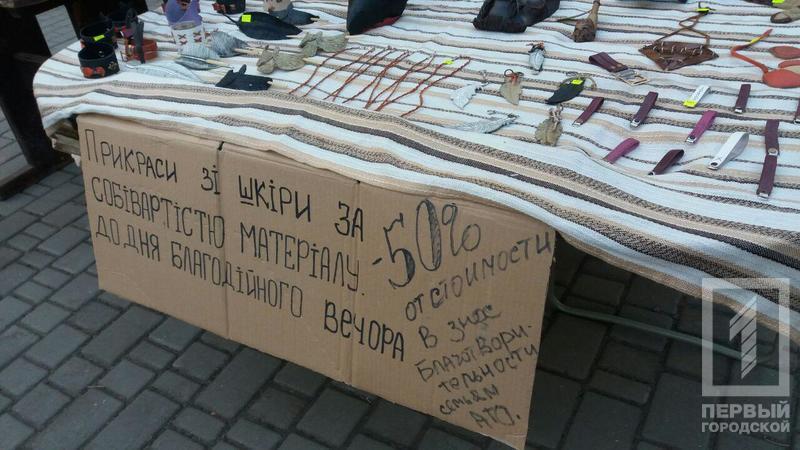 Прикраси зі шкіри за
собівартістю матеріалу.
до дня благодійного вечора
-50%
от стоимости
в знос
Благотвори-
тельности
семьям
АТО.
1
ПЕРВЫЙ
ГОРОДСКОЙ